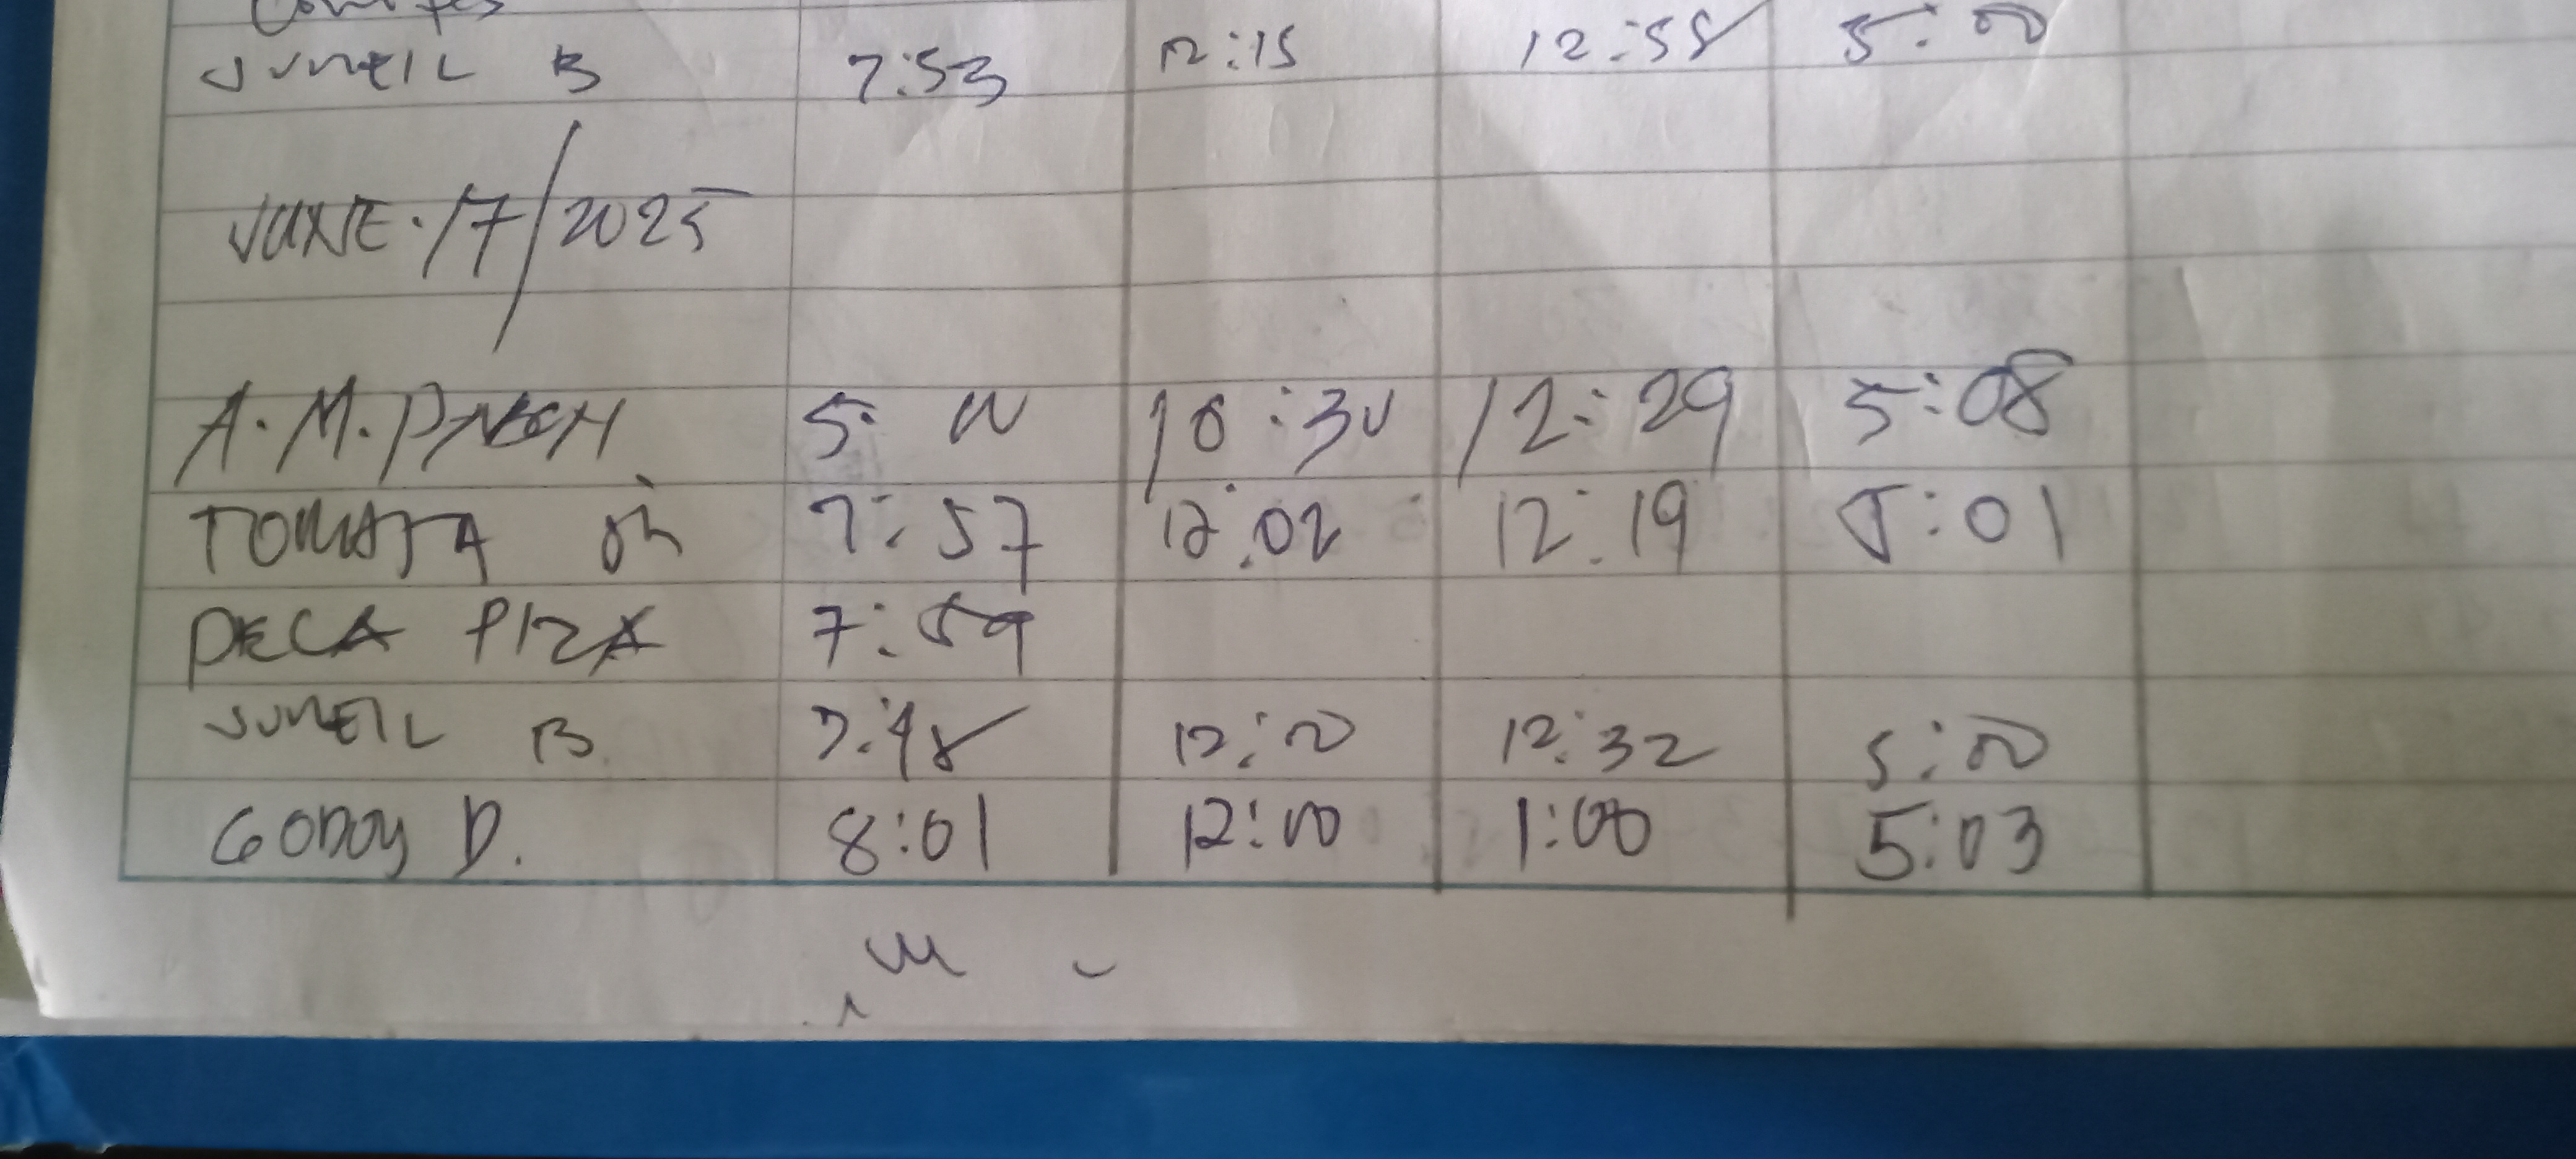 JUNEIL B 7:53 12:15 12:58 5:00
JUNE.17/2025
A.M. 5:00 10:30 12:29 5:08
TOMATA 7:57 12:02 12:19 5:01
DECA PIZA 7:59
JUNEIL B. 7:48 12:00 12:32 5:00
GODOY D. 8:01 12:00 1:00 5:03